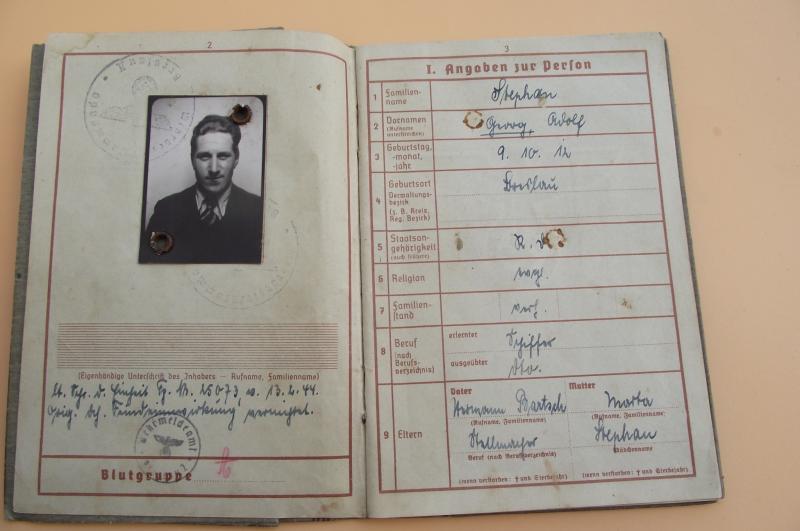 2
(Eigenhändige Unterschrift des Inhabers — Rufname, Familienname)
lt. Schr. d. Einheit Fp. Nr. 25073, v. 13.2.44.
Orig. dch. Feindeinwirkung vernichtet.
Wehrmeldeamt
Blutgruppe A
3
I. Angaben zur Person
1 Familien-
name
Stephan
2 Vornamen
(Rufname
unterstreichen)
Georg, Adolf
3 Geburtstag,
-monat,
-jahr
9. 10. 12
4 Geburtsort
Verwaltungs-
bezirk
(z. B. Kreis,
Reg. Bezirk)
Breslau
5 Staatsan-
gehörigkeit
(auch frühere)
R. d.
6 Religion
evgl.
7 Familien-
stand
verh.
8 Beruf
(nach
Berufs-
verzeichnis)
erlernter
Schiffer
ausgeübter
dto.
9 Eltern
Vater
Hermann Bartsch
(Rufname, Familienname)
Stellmacher
Beruf (nach Berufsverzeichnis)
(wenn verstorben: † und Sterbejahr)
Mutter
Marta
(Rufname, Familienname)
Stephan
Mädchenname
(wenn verstorben: † und Sterbejahr)